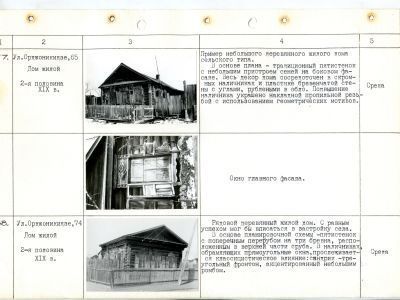 1
2
3
4
5
7.
Ул.Орджоникидзе,65
Дом жилой
2-я половина
XIX в.
Пример небольшого деревянного жилого дома
сельского типа.
В основе плана - традиционный пятистенок
с небольшим пристроем сеней на боковом фа-
саде. Весь декор дома сосредоточен в скром-
ных наличниках и пластике бревенчатой сте-
ны с углами, рубленными в обло. Повышение
наличника украшено накладной пропильной резь-
бой с использованием геометрических мотивов.
Срена
Окно главного фасада.
8.
Ул.Орджоникидзе,74
Дом жилой
2-я половина
XIX в.
Рядовой деревянный жилой дом. С равным
успехом мог бы вписаться в застройку села.
В основе планировочной схемы -пятистенок
с поперечным перерубом на три бревна, распо-
ложенным в верхней части сруба. В наличниках,
обрамляющих прямоугольные окна,прослеживает-
ся классицистическое влияние:сандрик -тре-
угольный фронтон, акцентированный небольшим
ромбом.
Срена